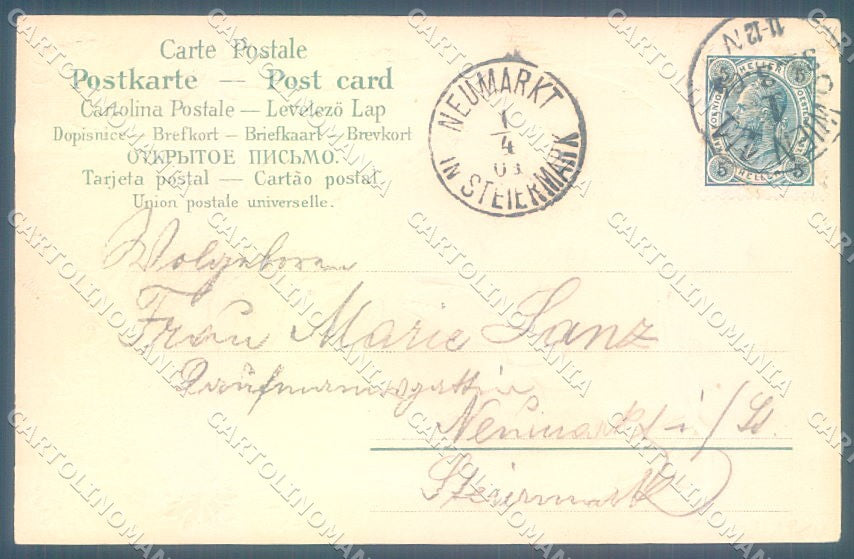 Carte Postale
Postkarte — Post card
Cartolina Postale — Levelező Lap
Dopisnice — Brefkort — Briefkaart — Brevkort
ОТКРЫТОЕ ПИСЬМО.
Tarjeta postal — Cartão postal
Union postale universelle.
NEUMARKT
1
4
IN STEIERMARK
11-12 N
5 HELLER 5
5 HELLER 5
Wolgeboren
Frau Marie Lanz
Kaufmannsgattin
Neumarkt i/St.
Steiermark
CARTOLINOMANIA